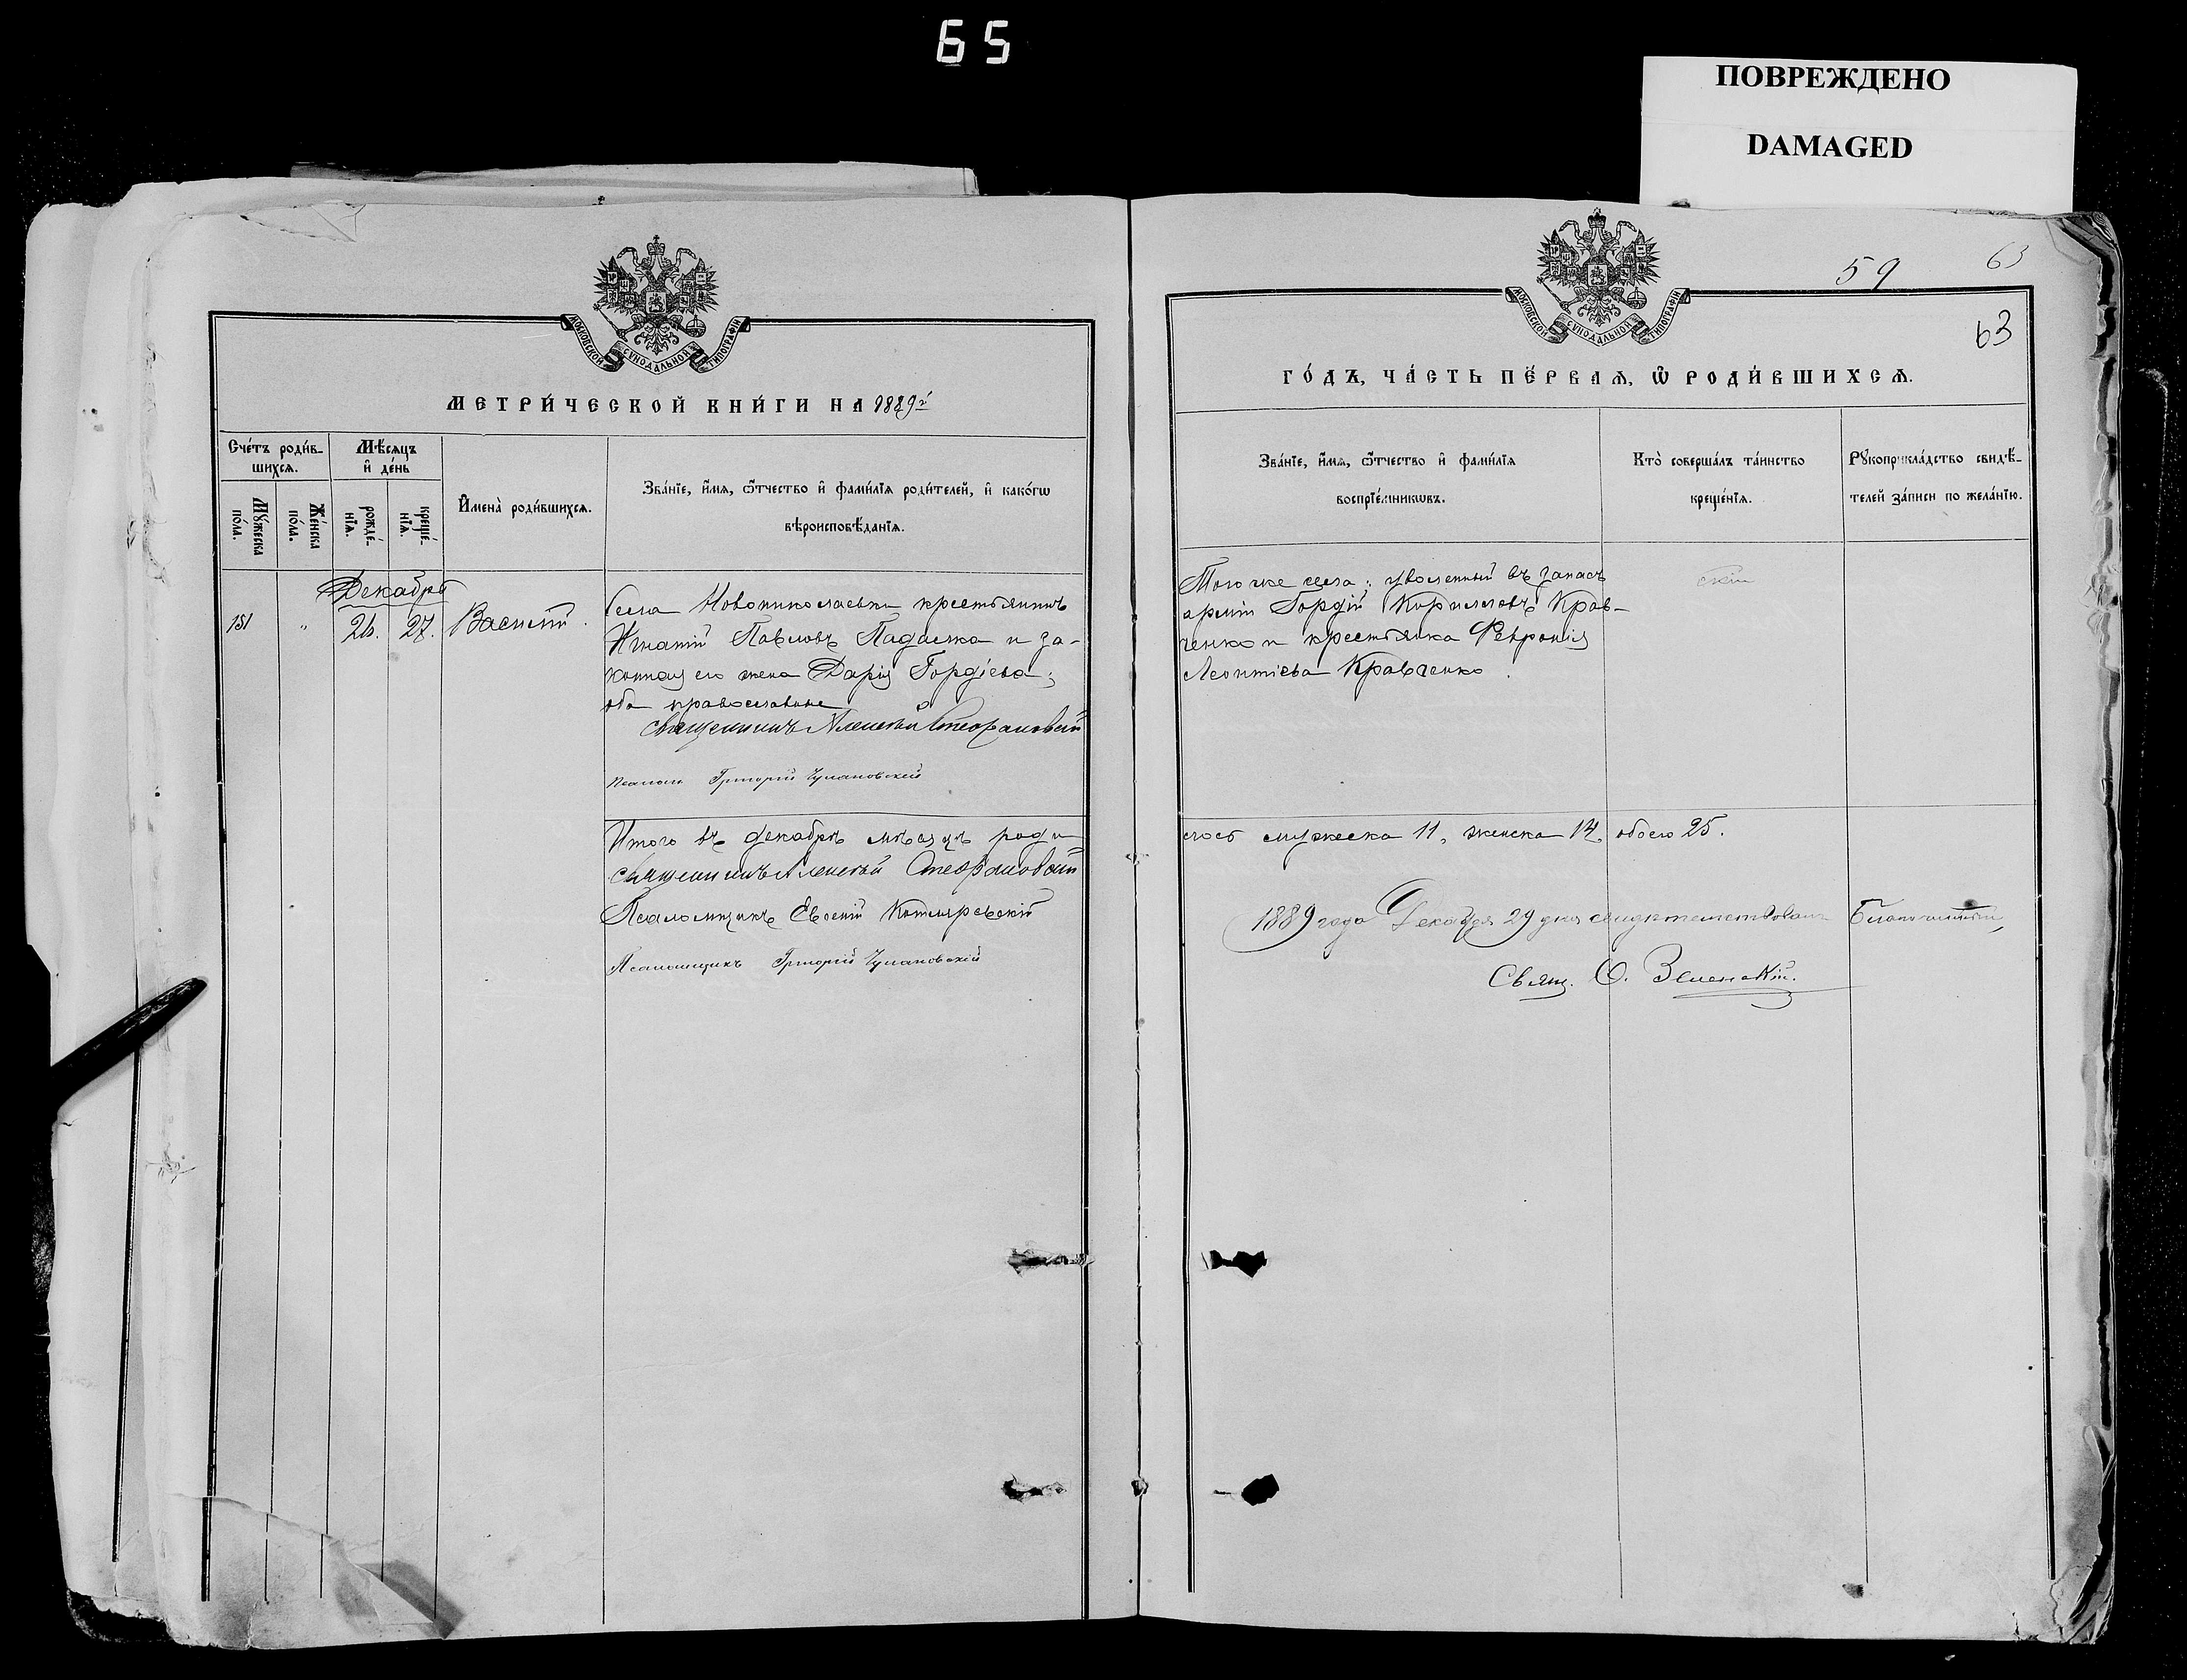 65
ПОВРЕЖДЕНО
DAMAGED
МОСКОВСКОЙ СѴНОДАЛЬНОЙ ТИПОГРАФІИ
МЕТРИ́ЧЕСКОЙ КНИ́ГИ НА 1889й
Сче́тъ роди́в-
шихсѧ.
Мѣ́сѧцъ
и҆ де́нь
Мꙋ́жеска
по́ла.
Же́нска
по́ла.
рожде́-
нїѧ.
креще́-
нїѧ.
И҆мена̀ роди́вшихсѧ.
Зва́нїе, и҆́мѧ, ѻ҆́тчество и҆ фами́лїѧ роди́телей, и҆ како́гѡ
вѣроисповѣ́данїѧ.
Декабрь
151 " 26. 27. Василій.
Села Новониколаевки крестьянинъ
Игнатій Павловъ Падалка и за-
конная его жена Дарія Гордіева;
оба православные
Священникъ Алексѣй Стефановскій
Псаломщ Григорій
Итого въ декабрѣ мѣсяцѣ роди
Священникъ Алексѣй Стефановскій
Псаломщикъ Евсеній Котляревскій
Псаломщикъ Григорій
59
63
63
МОСКОВСКОЙ СѴНОДАЛЬНОЙ ТИПОГРАФІИ
ГО́ДЪ, ЧА́СТЬ ПЕ́РВАѦ, Ѡ҆ РОДИ́ВШИХСѦ.
Зва́нїе, и҆́мѧ, ѻ҆́тчество и҆ фами́лїѧ
воспрїе́мникѡвъ.
Кто̀ соверша́лъ та́инство
креще́нїѧ.
Рꙋкоприкла́дство свидѣ́-
телей за́писи по жела́нїю.
Того же села: уволенный въ запасъ
арміи Гордій Кирилловъ Крав-
ченко и крестьянка Февронія
Леонтіева Кравченко.
скій
лось мужеска 11, женска 14, обоего 25.
1889 года Декабря 29 дня свидѣтельствовалъ Благочинный,
Свящ. О. Зеленскій.